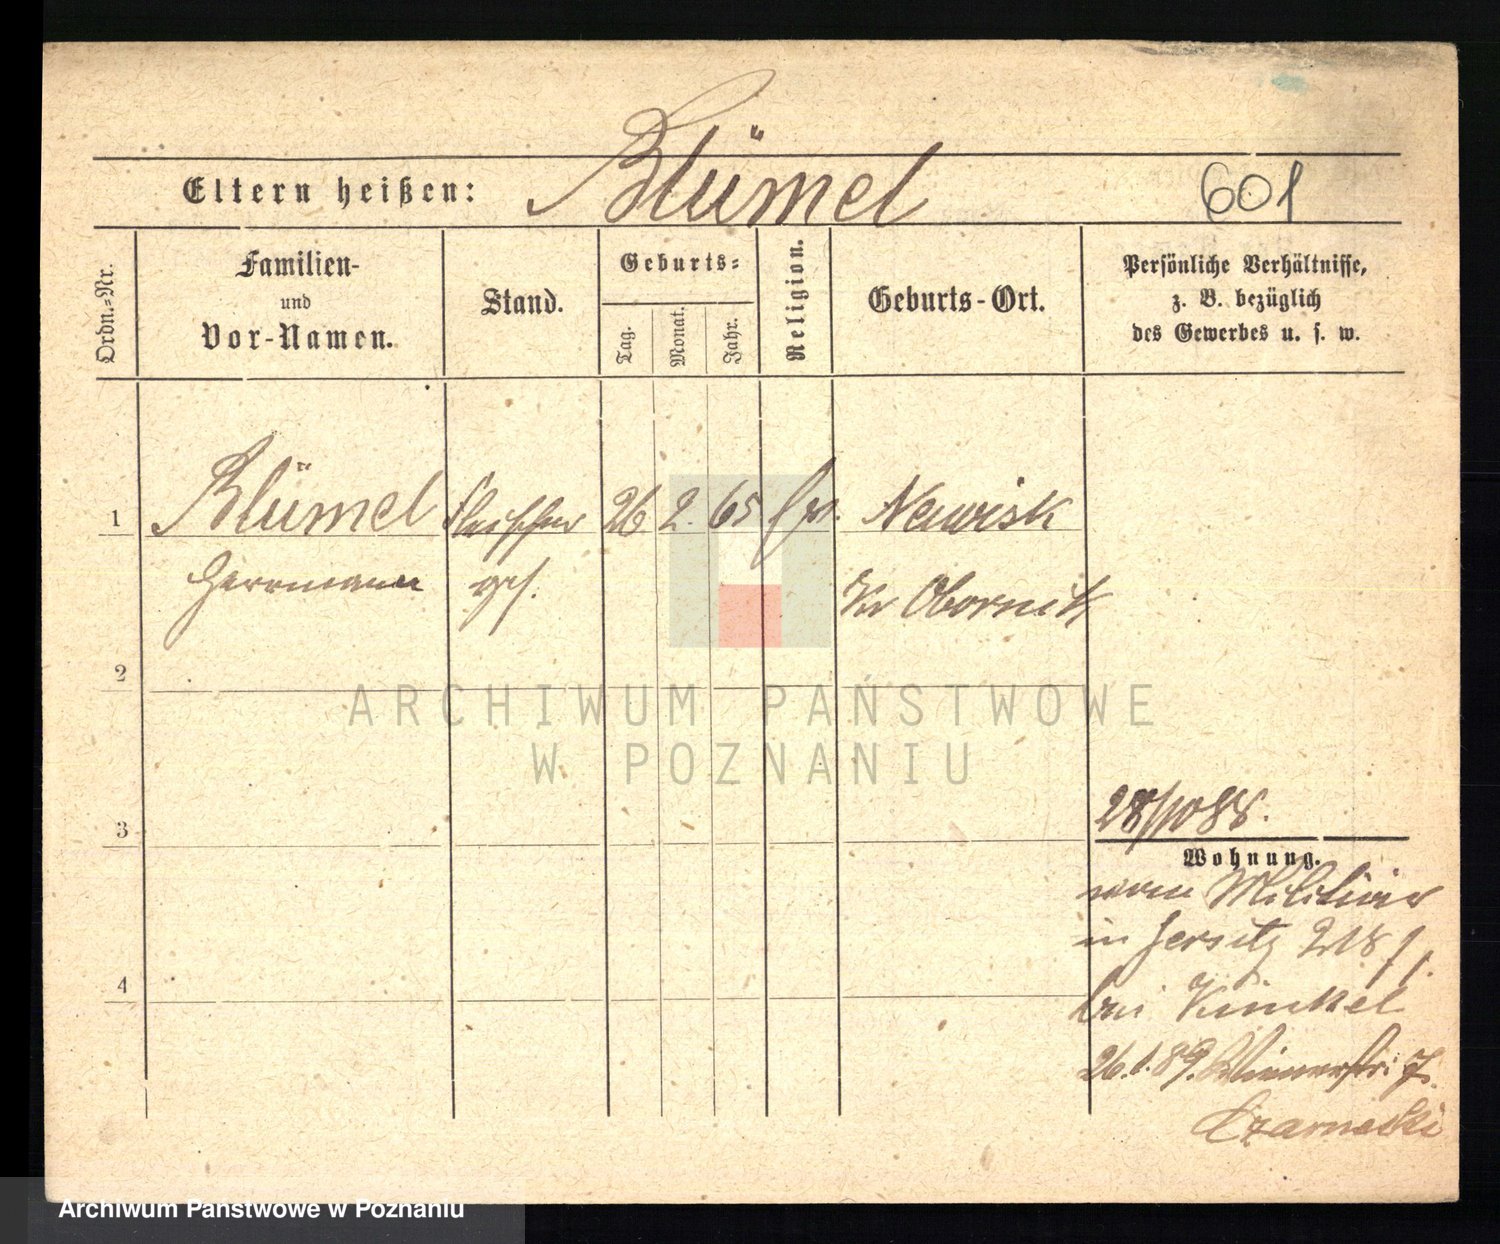 Blümel
Eltern heißen:
601
Ordn.-Nr.
Familien-
und
Vor-Namen.
Stand.
Geburts-
Tag.
Monat.
Jahr.
Religion.
Geburts-Ort.
Persönliche Verhältnisse,
z. B. bezüglich
des Gewerbes u. s. w.
1
Blümel
Fleischer
26
2.
65
Neuvisk
Herrmann
ges.
Kr Obornik
2
ARCHIWUM PAŃSTWOWE
W POZNANIU
28/10 88.
3
Wohnung.
vom Militär
in Jersitz 218
4
bei Kunkel
26.1.89.
Czarnecki
Archiwum Państwowe w Poznaniu